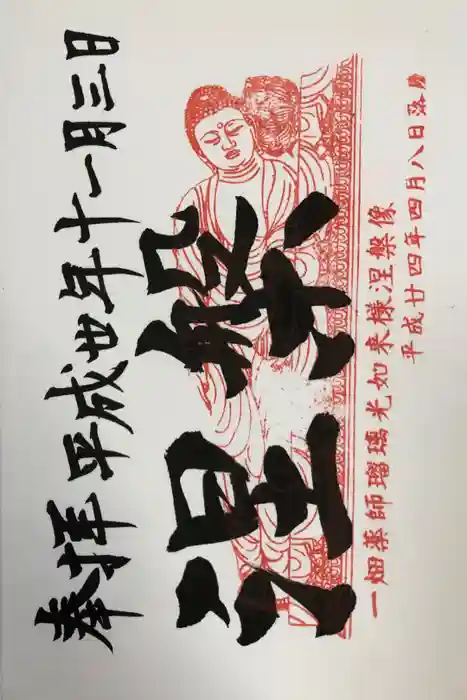 奉拝平成丗年十一月三日
涅槃
一畑薬師瑠璃光如来様涅槃像
平成廿四年四月八日落